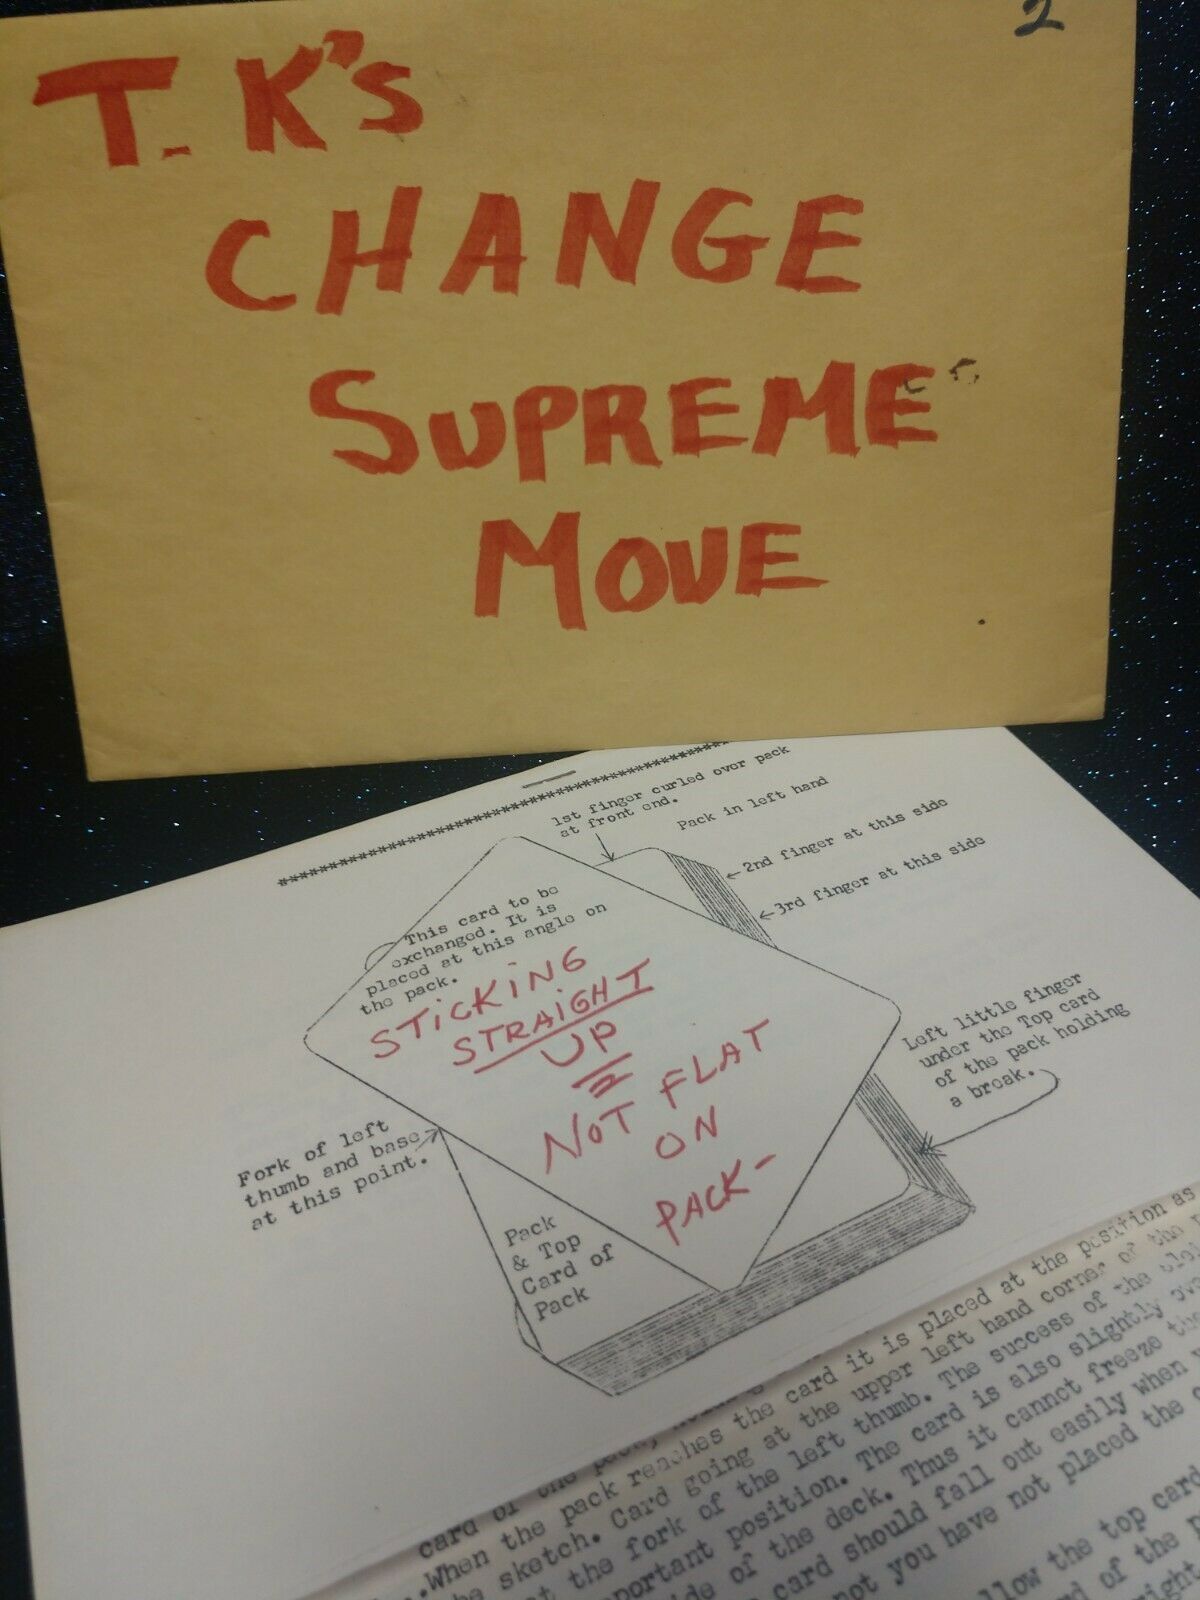 2
T. K's
CHANGE
SUPREME
MOVE
1st finger curled over pack
at front end.
Pack in left hand
2nd finger at this side
3rd finger at this side
This card to be
exchanged. It is
placed at this angle on
the pack.
STICKING
STRAIGHT
UP
NOT FLAT
ON
PACK-
Left little finger
under the Top card
of the pack holding
a break.
Fork of left
thumb and base
at this point.
Pack
& Top
Card of
Pack
card of the
.When the pack reaches the card it is placed at the position as
sketch. Card going at the upper left hand corner of the
at the fork of the left thumb. The success of the
position. The card is also slightly
side of the deck. Thus it cannot freeze
card should fall out easily when
not you have not placed the
the top card
of the